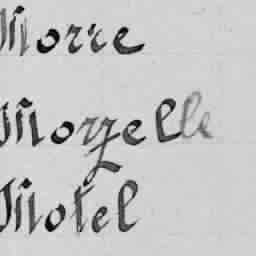 Morre
Mozzelle
Motel